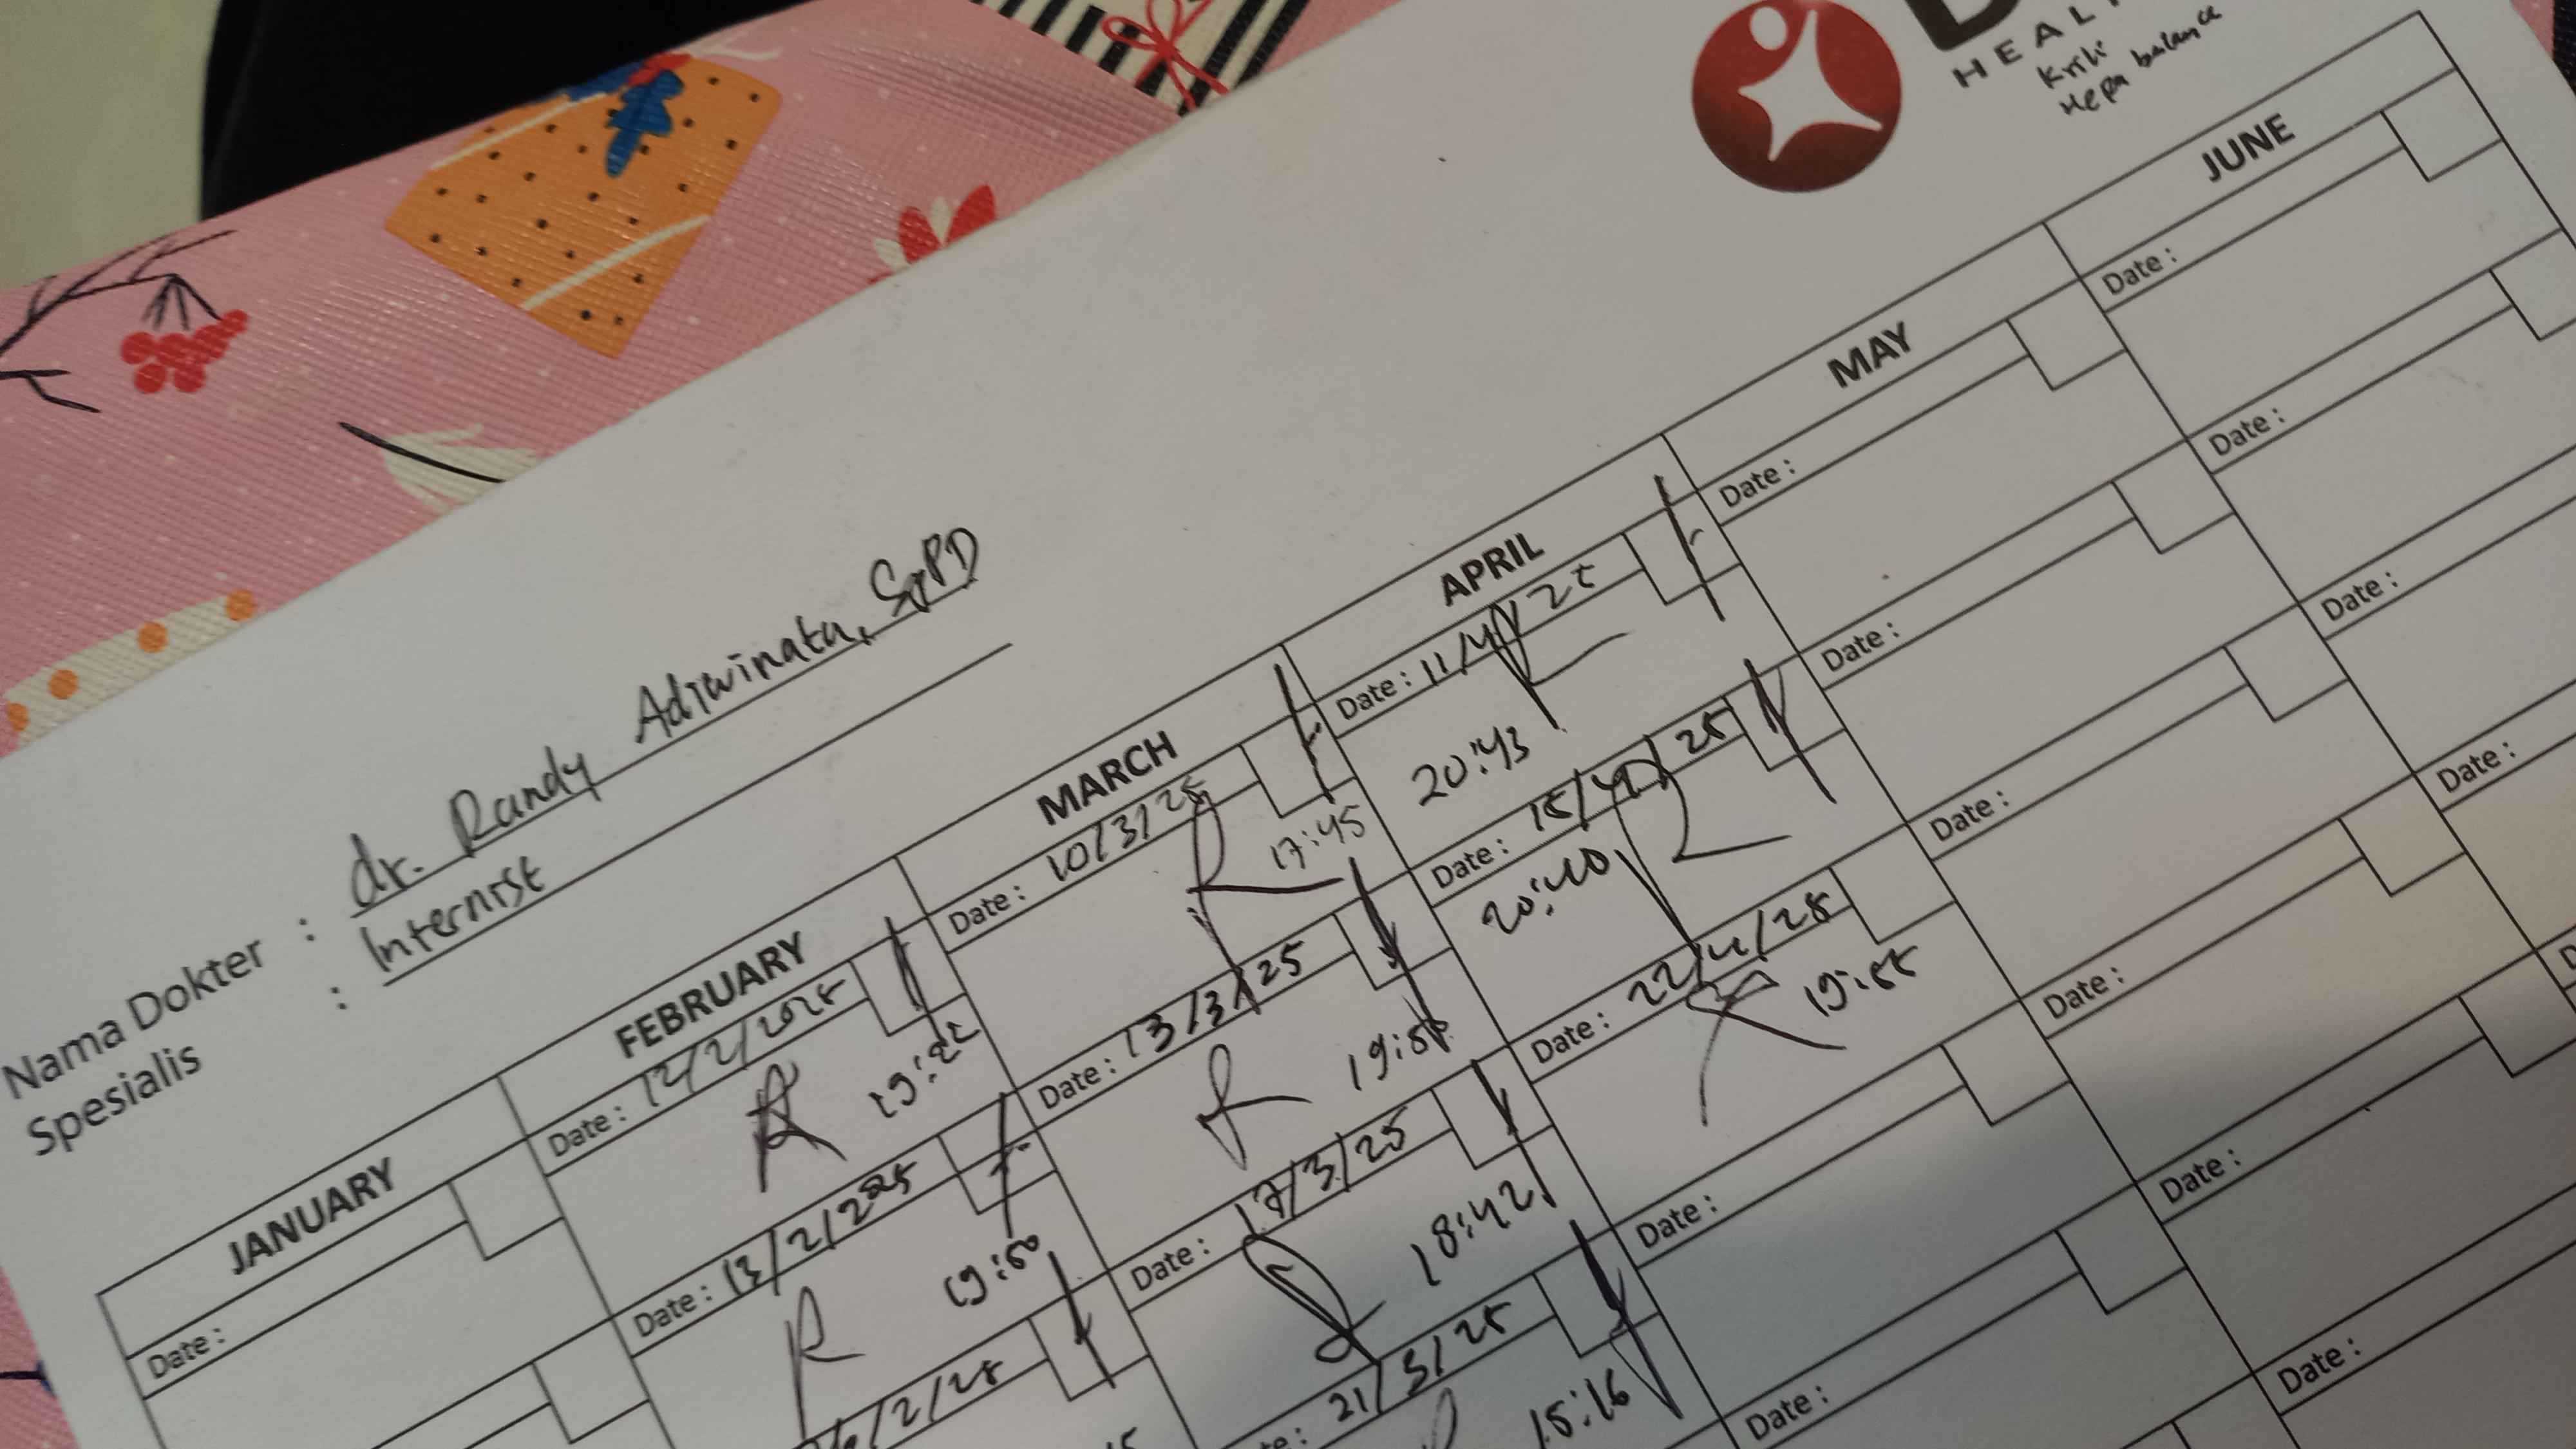 HEAL
Krili
Hepa balance
Nama Dokter : dr. Randy Adiwinata, SpPD
Spesialis : Internist
JANUARY FEBRUARY MARCH APRIL MAY JUNE
Date : Date : 12/2/2025 Date : 10/3/25 Date : 11/4/25 Date : Date :
17:45 20:43
Date : 13/2/2025 Date : 13/3/25 Date : 15/4/25 Date : Date :
19:50 20:40
/2/25 Date : 17/3/25 Date : 22/4/25 Date : Date :
18:42 19:55
21/3/25 Date : Date : Date :
15:16
Date : Date : Date :
Date :